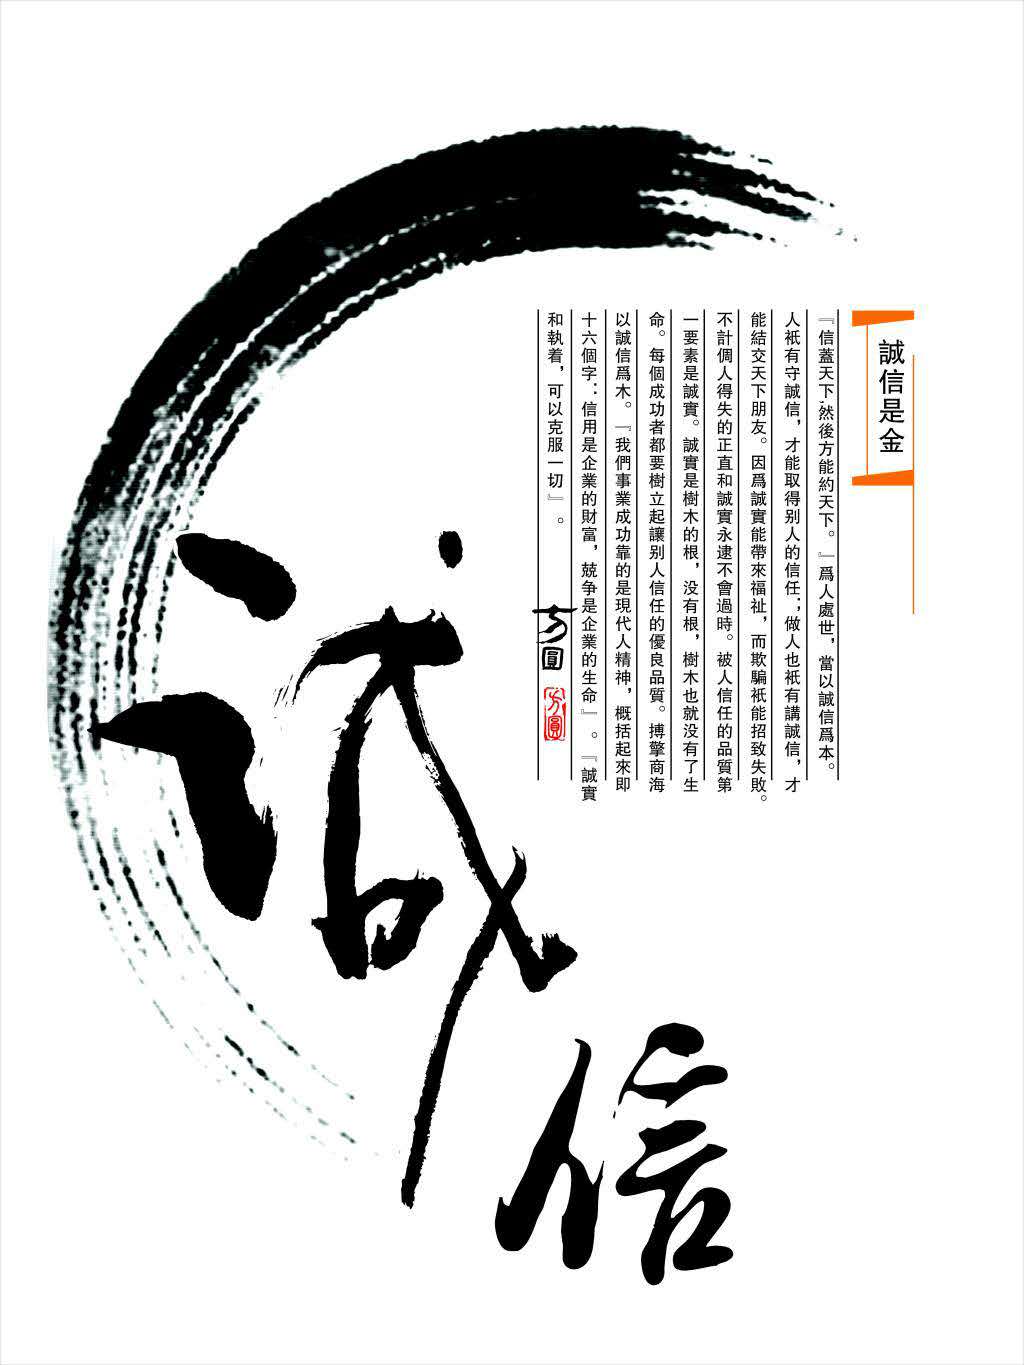 誠信是金
『信蓋天下,然後方能約天下。』爲人處世，當以誠信爲本。
人衹有守誠信，才能取得别人的信任；做人也衹有講誠信，才
能結交天下朋友。因爲誠實能帶來福祉，而欺騙衹能招致失敗。
不計個人得失的正直和誠實永逮不會過時。被人信任的品質第
一要素是誠實。誠實是樹木的根，没有根，樹木也就没有了生
命。每個成功者都要樹立起讓别人信任的優良品質。搏擎商海
以誠信爲木。『我們事業成功靠的是現代人精神，概括起來即
十六個字：信用是企業的財富，競争是企業的生命』。『誠實
和執着，可以克服一切』。
方圓
方圓
诚信